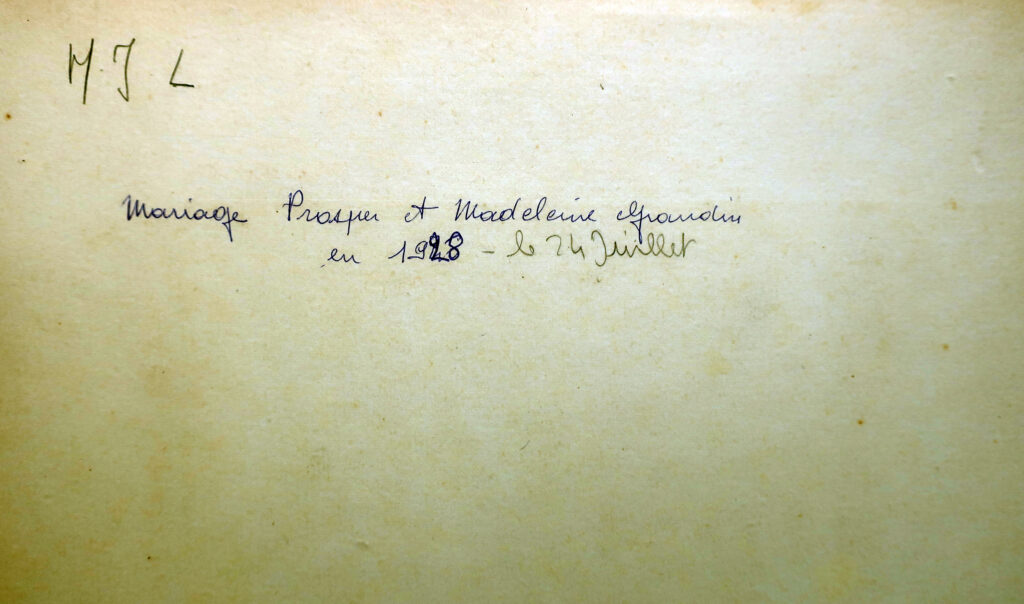 M. J L
Mariage Prosper et Madeleine Grandin
en 1928 - le 24 Juillet